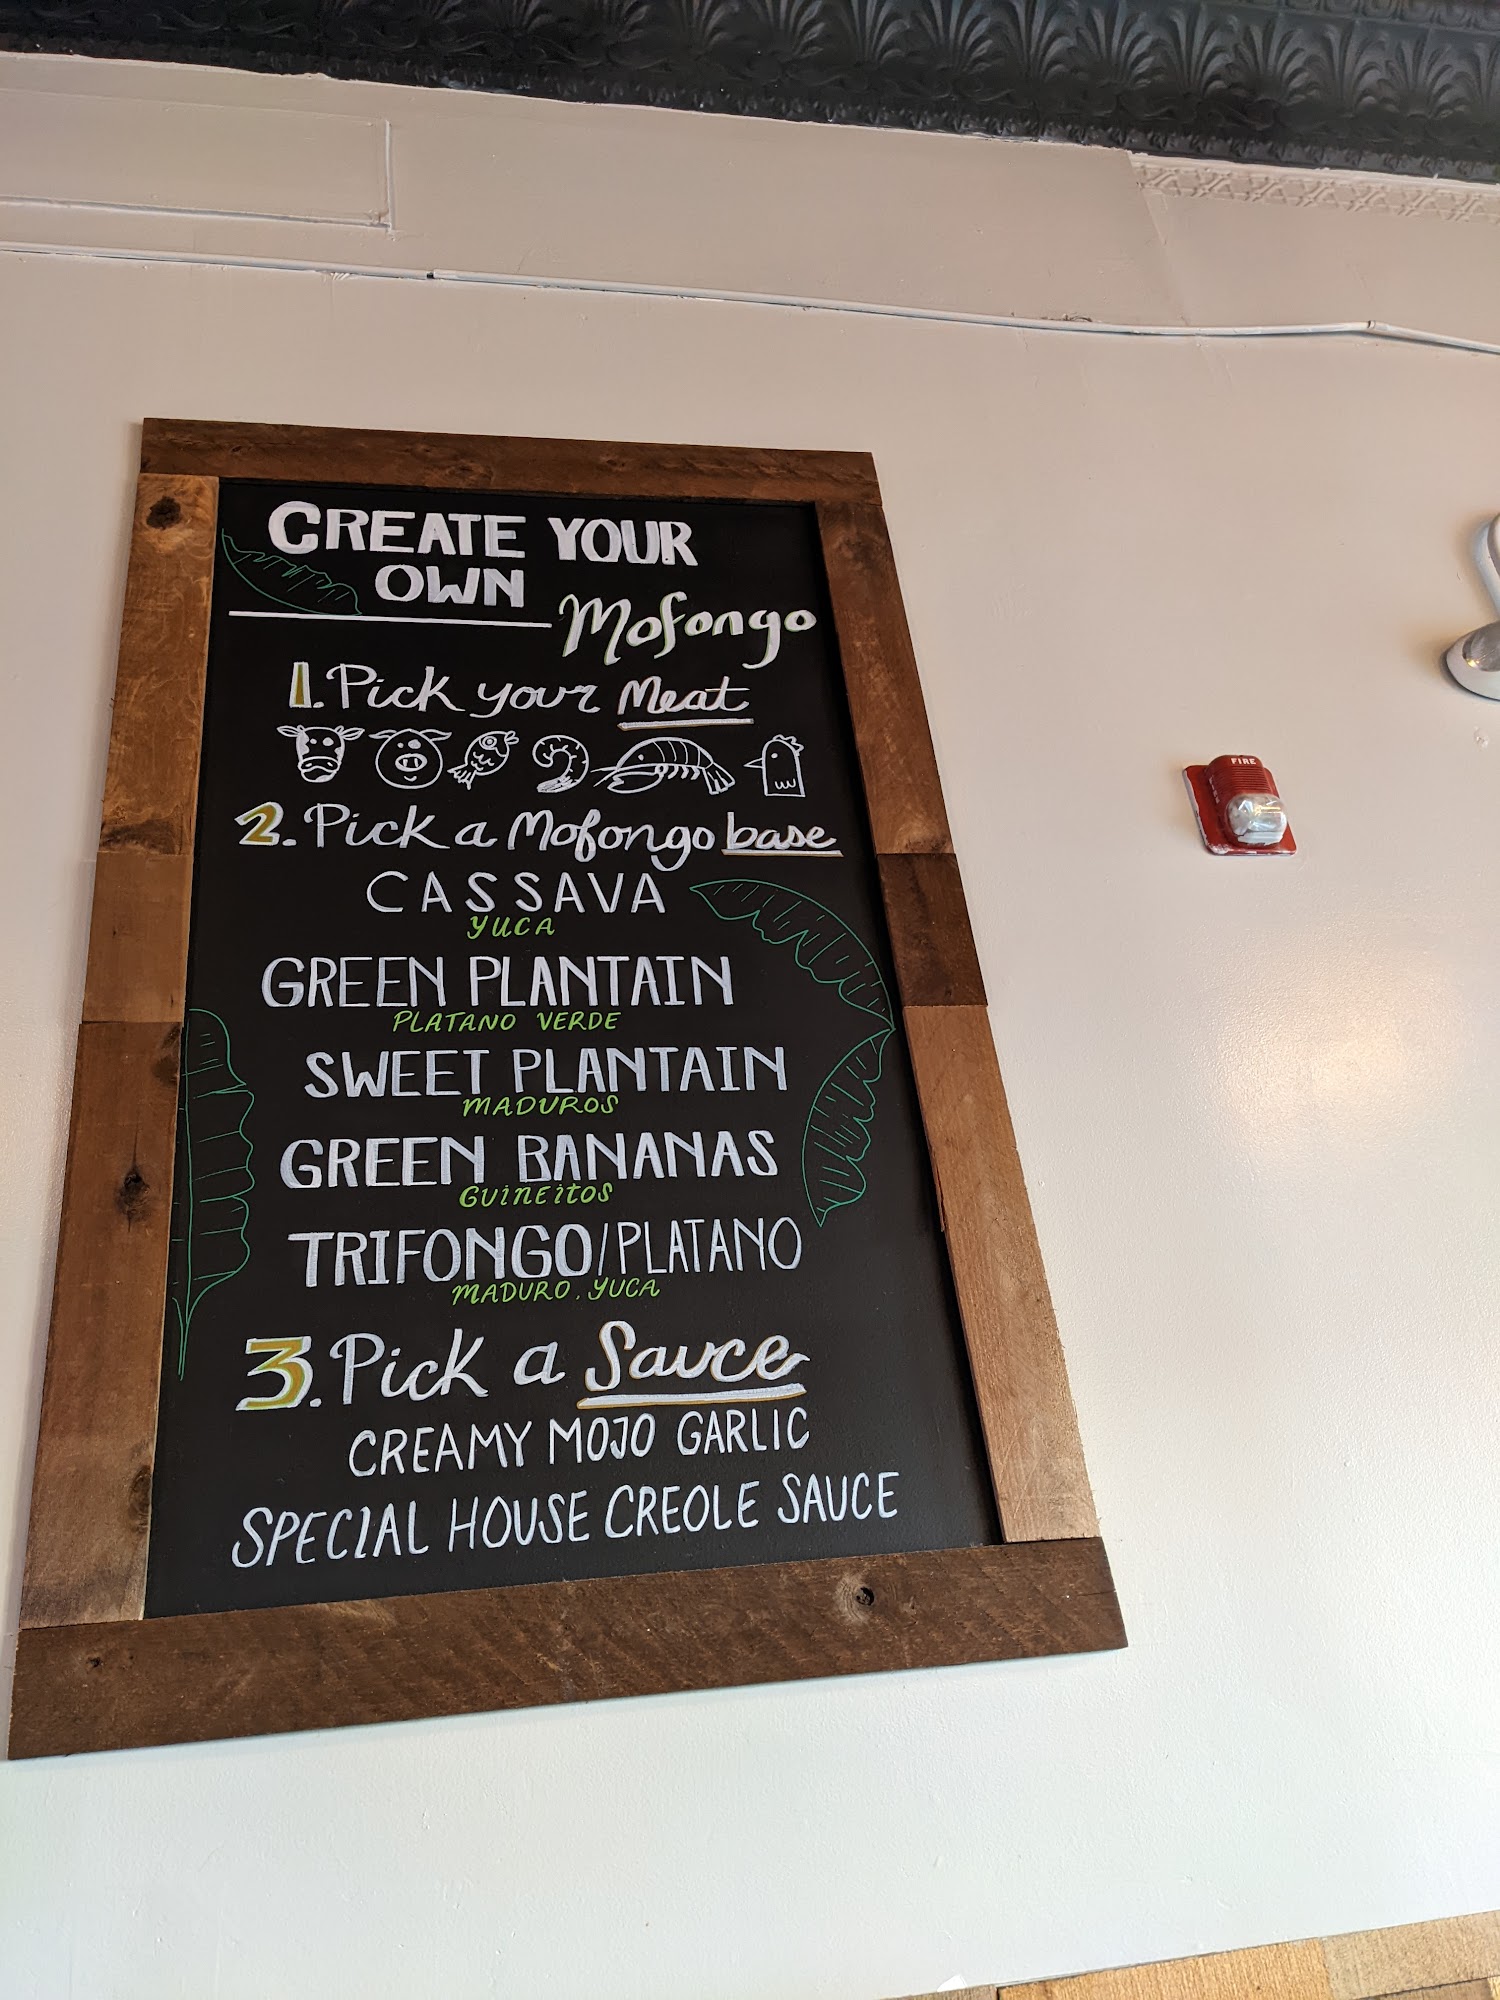 CREATE YOUR
OWN
Mofongo
1. Pick your Meat
2. Pick a Mofongo base
CASSAVA
YUCA
GREEN PLANTAIN
PLATANO VERDE
SWEET PLANTAIN
MADUROS
GREEN BANANAS
GUINEITOS
TRIFONGO/PLATANO
MADURO, YUCA
3. Pick a Sauce
CREAMY MOJO GARLIC
SPECIAL HOUSE CREOLE SAUCE
FIRE